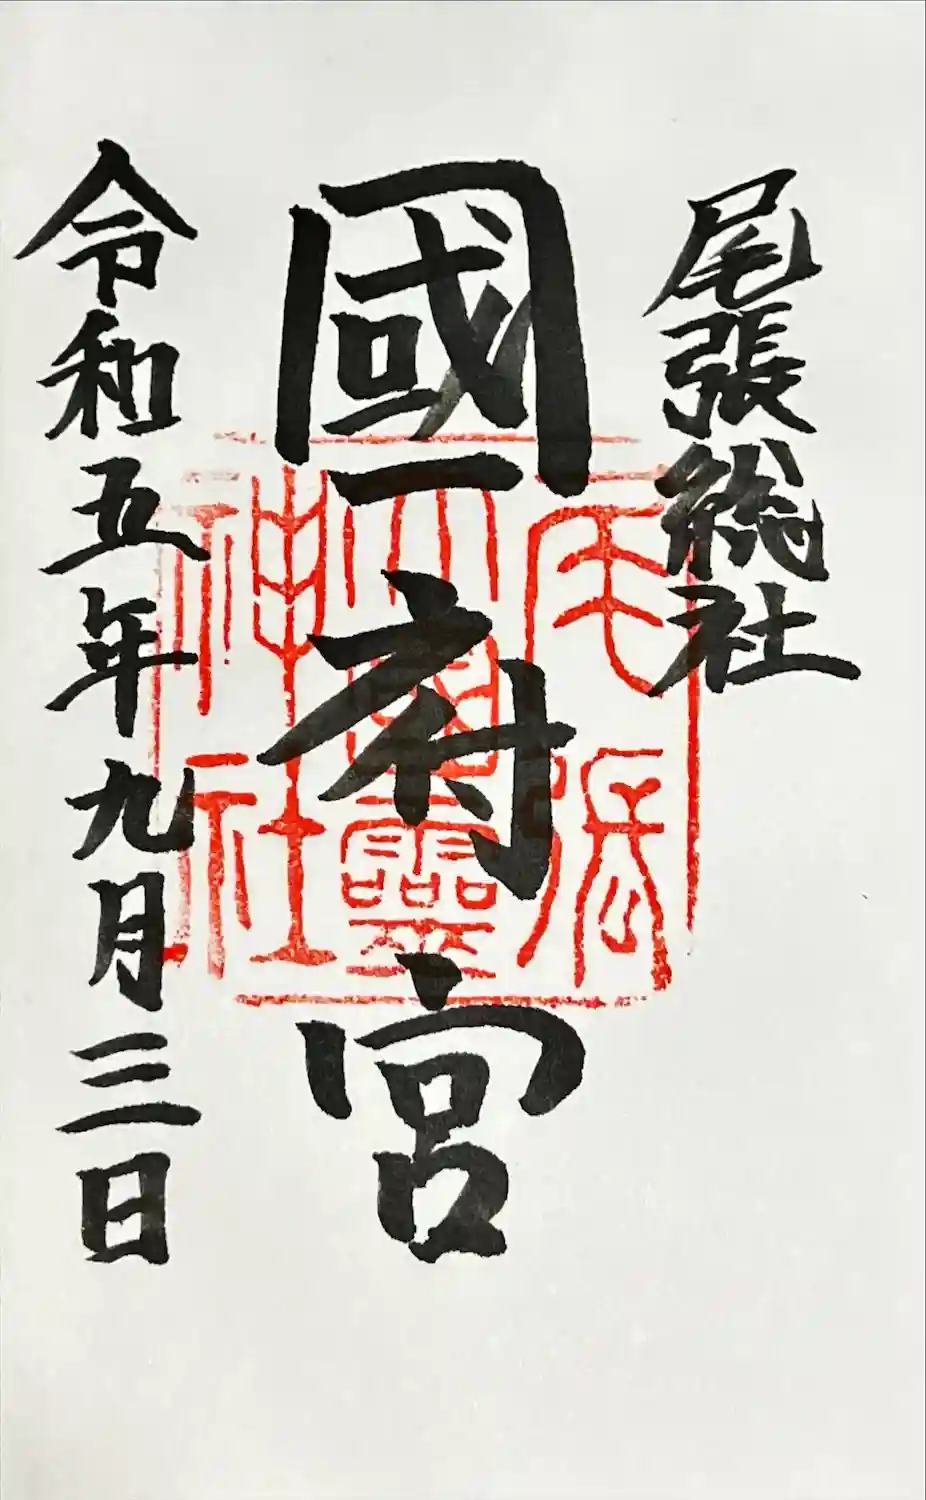 尾張総社
國府宮
令和五年九月三日
尾張
大國靈
神社